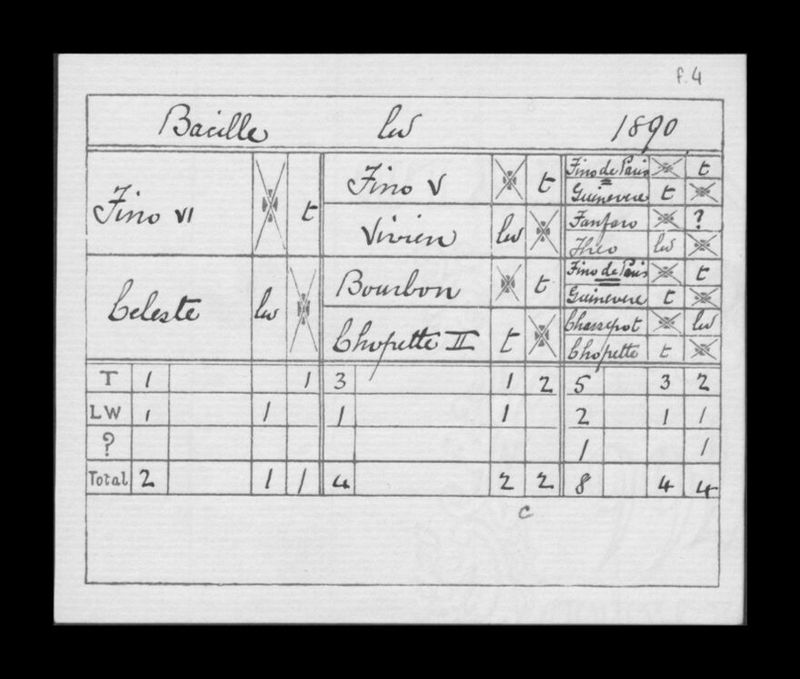 f. 4
Bacille lw 1890
Fino VI t
Celeste lw
Fino V t
Vivien lw
Bourbon t
Chopette II t
Fino de Paris t
Guinevere t
Fanfaro ?
Theo lw
Fino de Paris t
Guinevere t
Chassepot lw
Chopette t
T 1 1 3 1 2 5 3 2
LW 1 1 1 1 2 1 1
? 1 1
Total 2 1 1 4 2 2 8 4 4
C